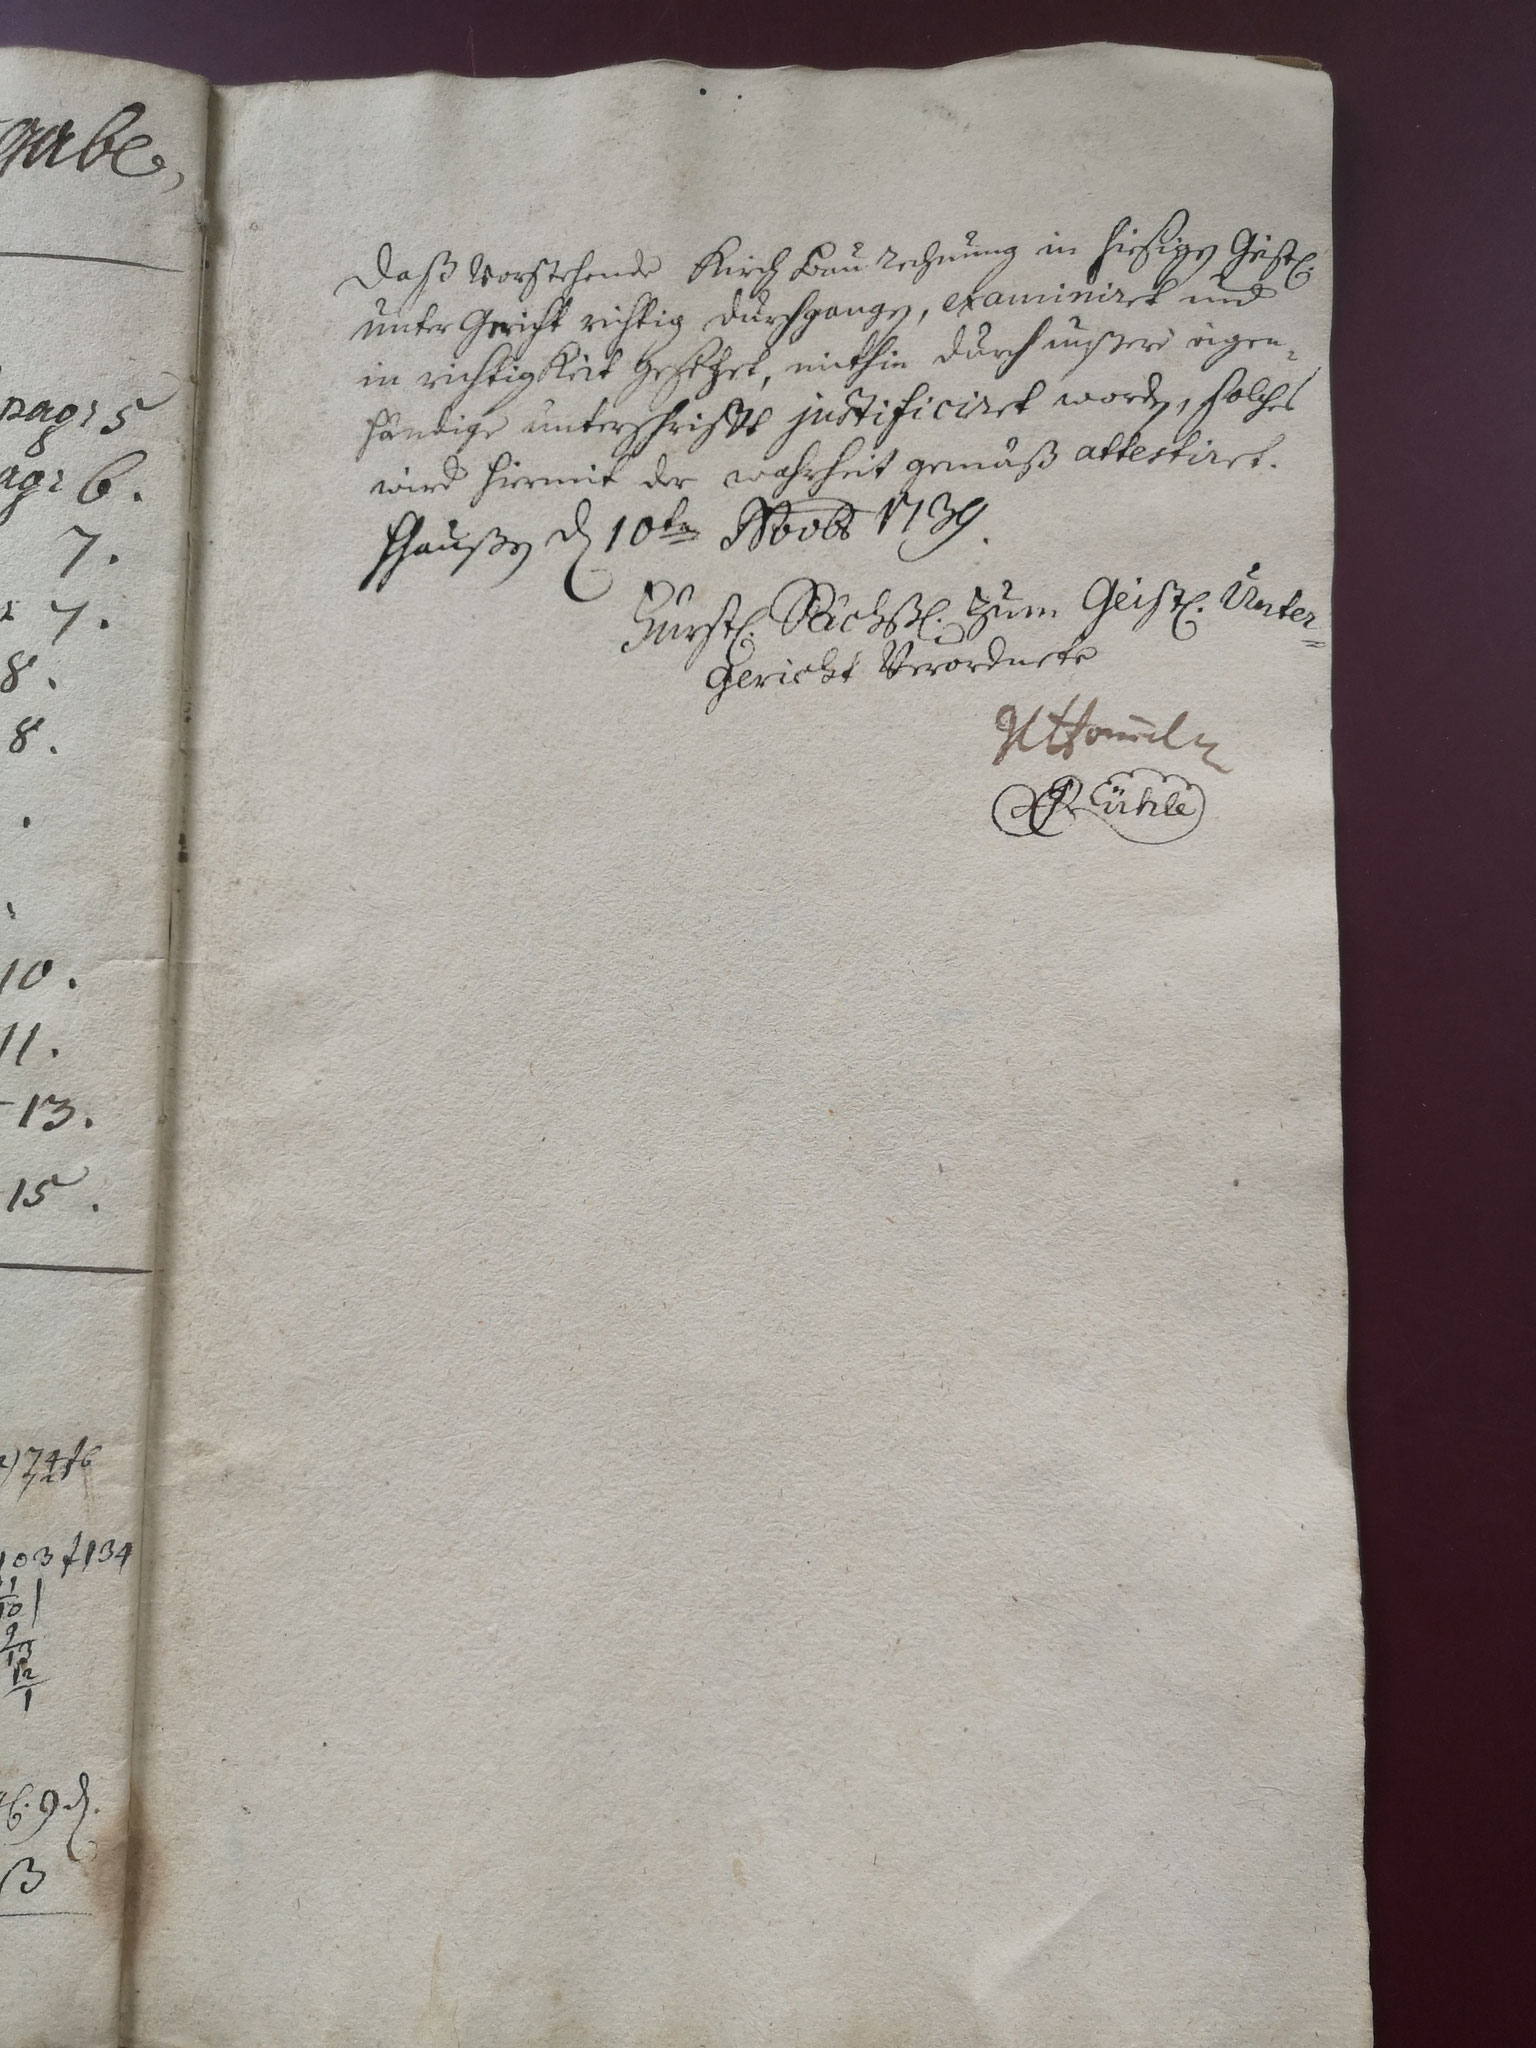 gabe,
pag: 5
ag: 6.
7.
7.
8.
8.
10.
11.
13.
15.
103 f 134
10
9
13
12
1
9 d.
3
Daß Vorstehende Kirch Bau Rechnung in hiesigen Geistl.
unter Gericht richtig durchgangen, examiniret und
in richtigkeit gesetzet, mithin durch unßere eigen-
händige unterschrifft justificiret worden, solches
wird hiermit der wahrheit gemäß attestiret.
d 10ten Novbr 1739.
Fürstl. Sächßl. zum Geistl. Unter-
Gericht Verordnete